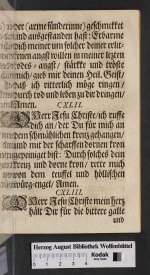 für der (arme sünderinne) geschmecket
und ausgestanden hast: Erbarme
dich meiner um solcher deiner erlit-
tenen angst willen in meiner letzten
todes-angst/ stärcke und tröste
mich/ gieb mir deinen Heil. Geist/
daß ich ritterlich möge ringen/
durch tod und leben zu dir dringen/
Amen.
CXLII.
O Herr Jesu Christe/ ich ruffe
dich an/ der Du für mich an
dem schmählichen kreutz gehangen/
und mit der scharffen dornen kron
gepeiniget bist: Durch solches dein
kreutz und dorne kron/ rette mich
von dem teuffel und höllischen
würg-engel/ Amen.
CXLIII.
O Herr Jesu Christe mein hertz
hält Du für die bittere galle
und
Herzog August Bibliothek Wolfenbüttel